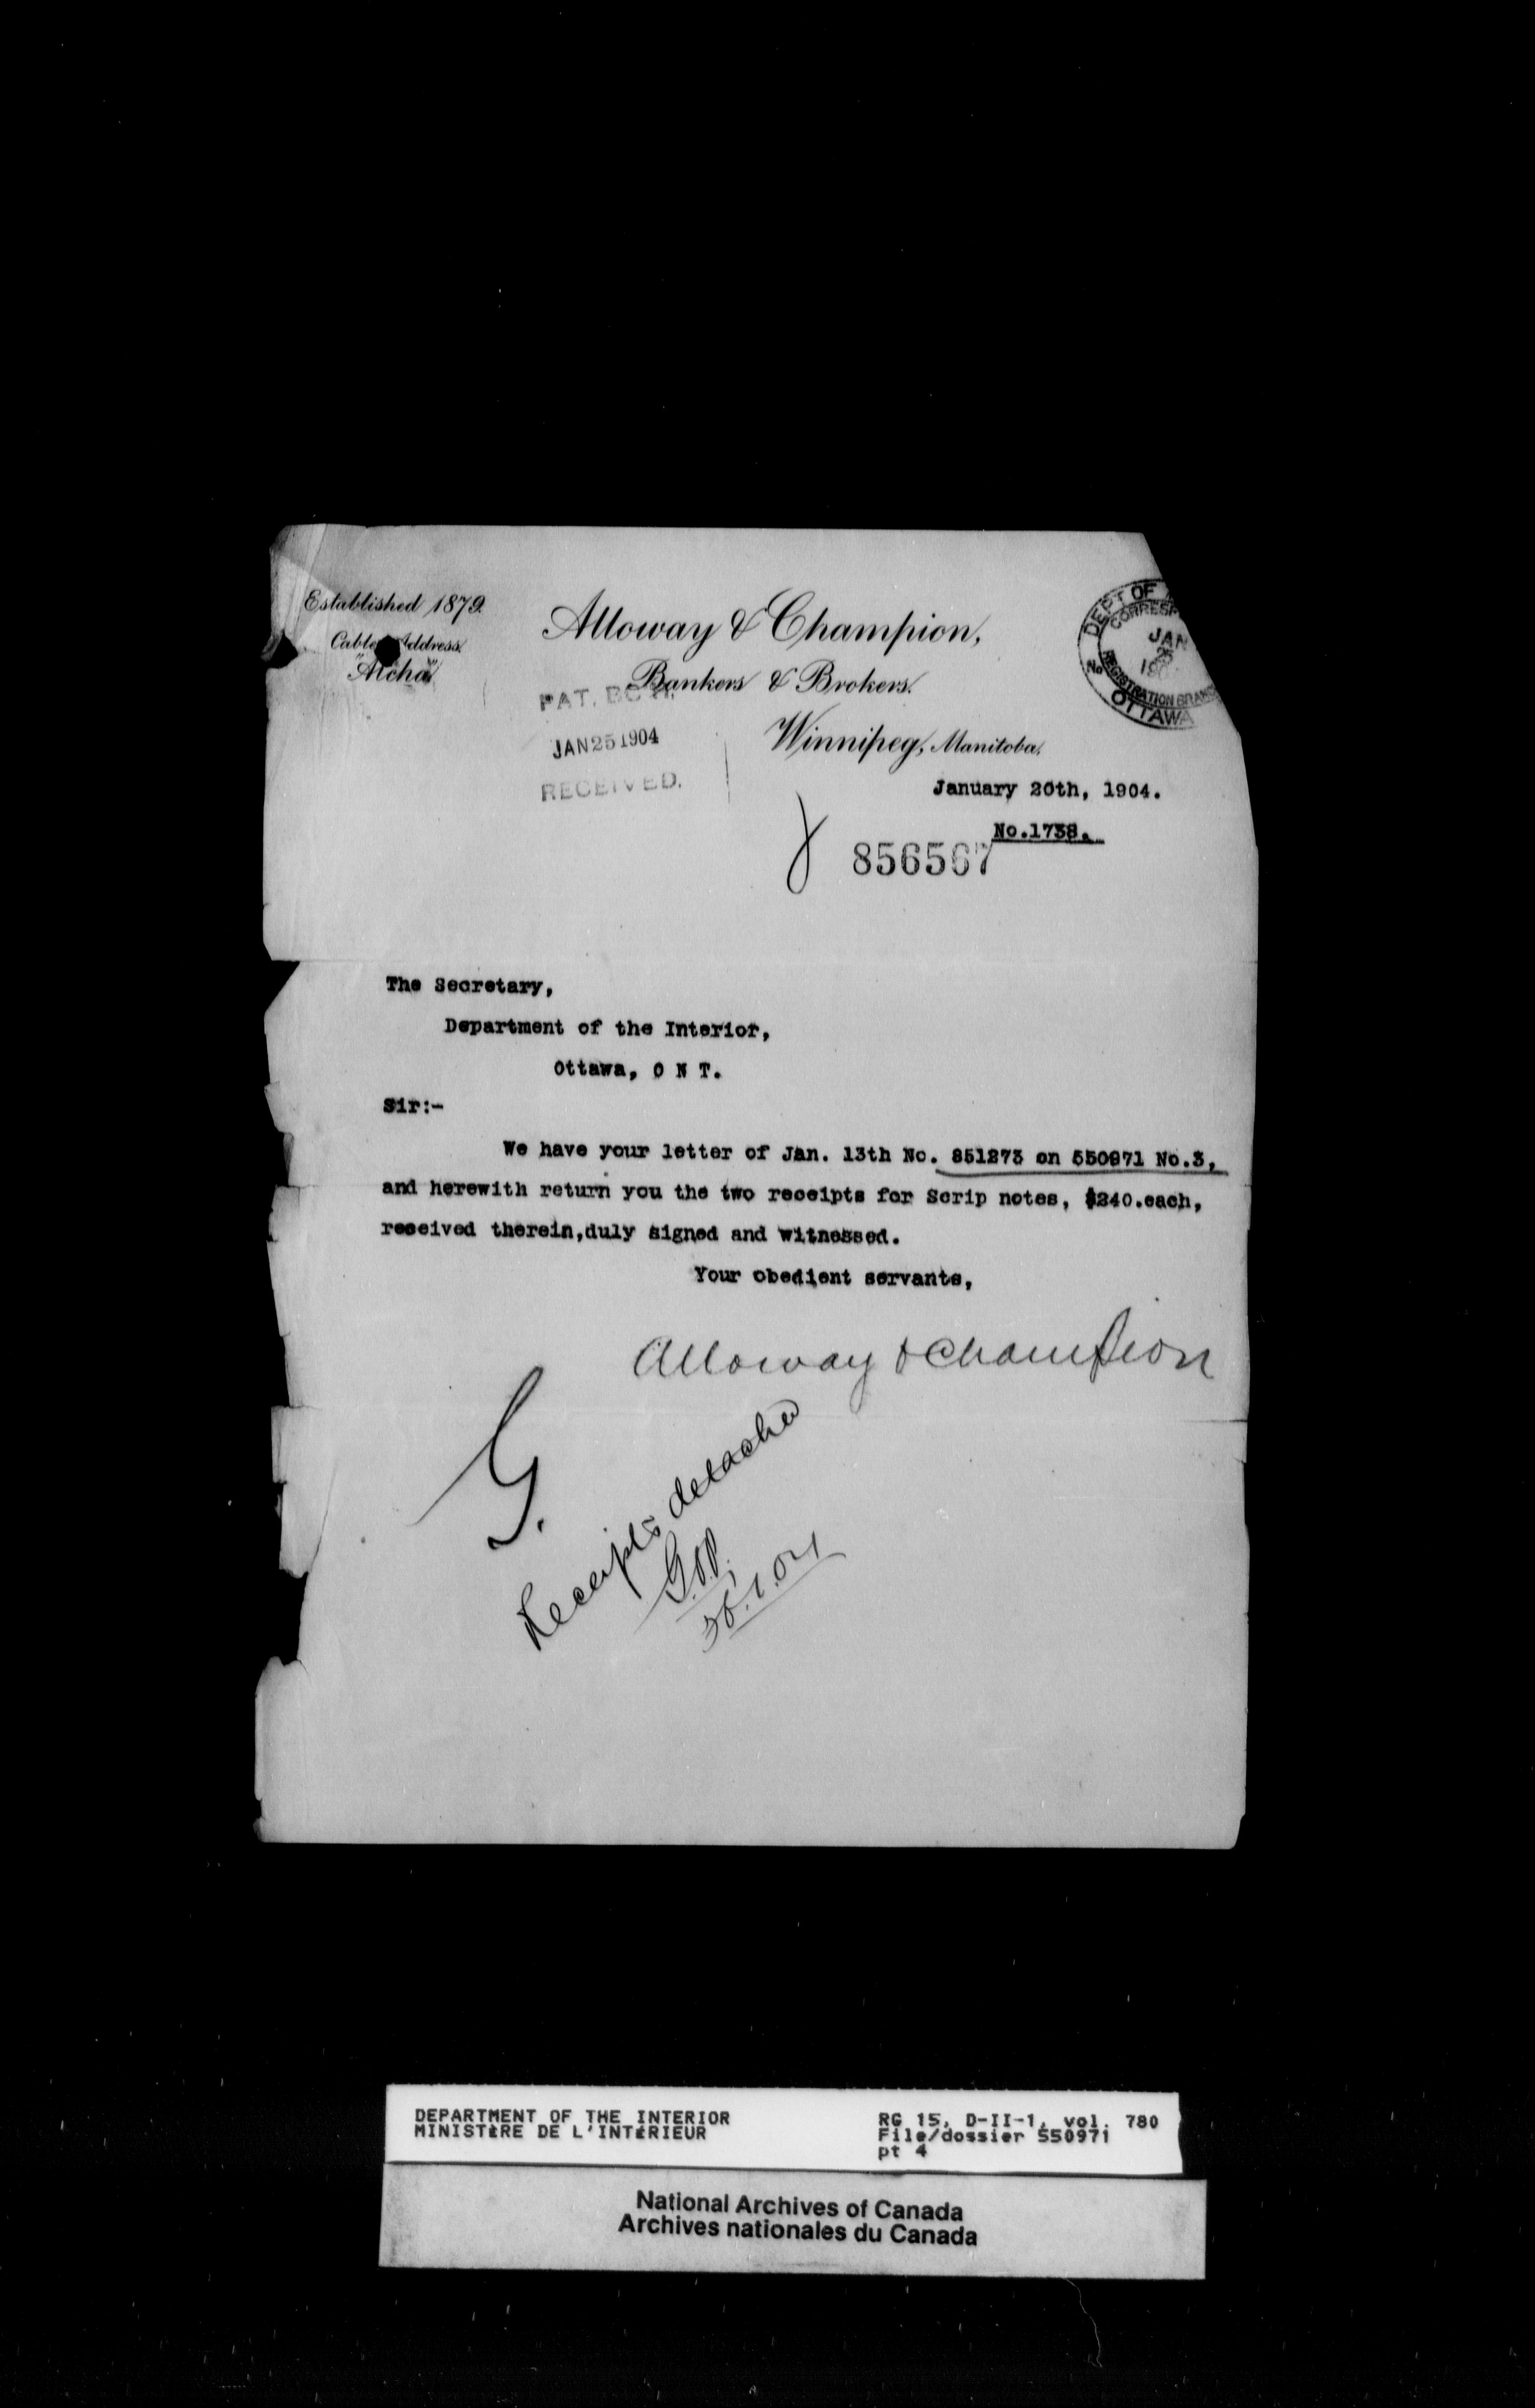 Established 1879.
Cable Address
"Alcha"
Alloway & Champion,
Bankers & Brokers.
Winnipeg, Manitoba,
DEPT OF
CORRESP
JAN
25
No
REGISTRATION BRANCH
OTTAWA
PAT.
JAN 25 1904
RECEIVED.
January 20th, 1904.
No.1738.
856567
The Secretary,
Department of the Interior,
Ottawa, O N T.
Sir:-
We have your letter of Jan. 13th No. 851273 on 550971 No.3,
and herewith return you the two receipts for Scrip notes, $240.each,
received therein,duly signed and witnessed.
Your obedient servants,
Alloway & Champion
G.
Receipts detached
DEPARTMENT OF THE INTERIOR
MINISTÈRE DE L'INTÉRIEUR
RG 15, D-II-1, vol. 780
File/dossier 550971
pt 4
National Archives of Canada
Archives nationales du Canada